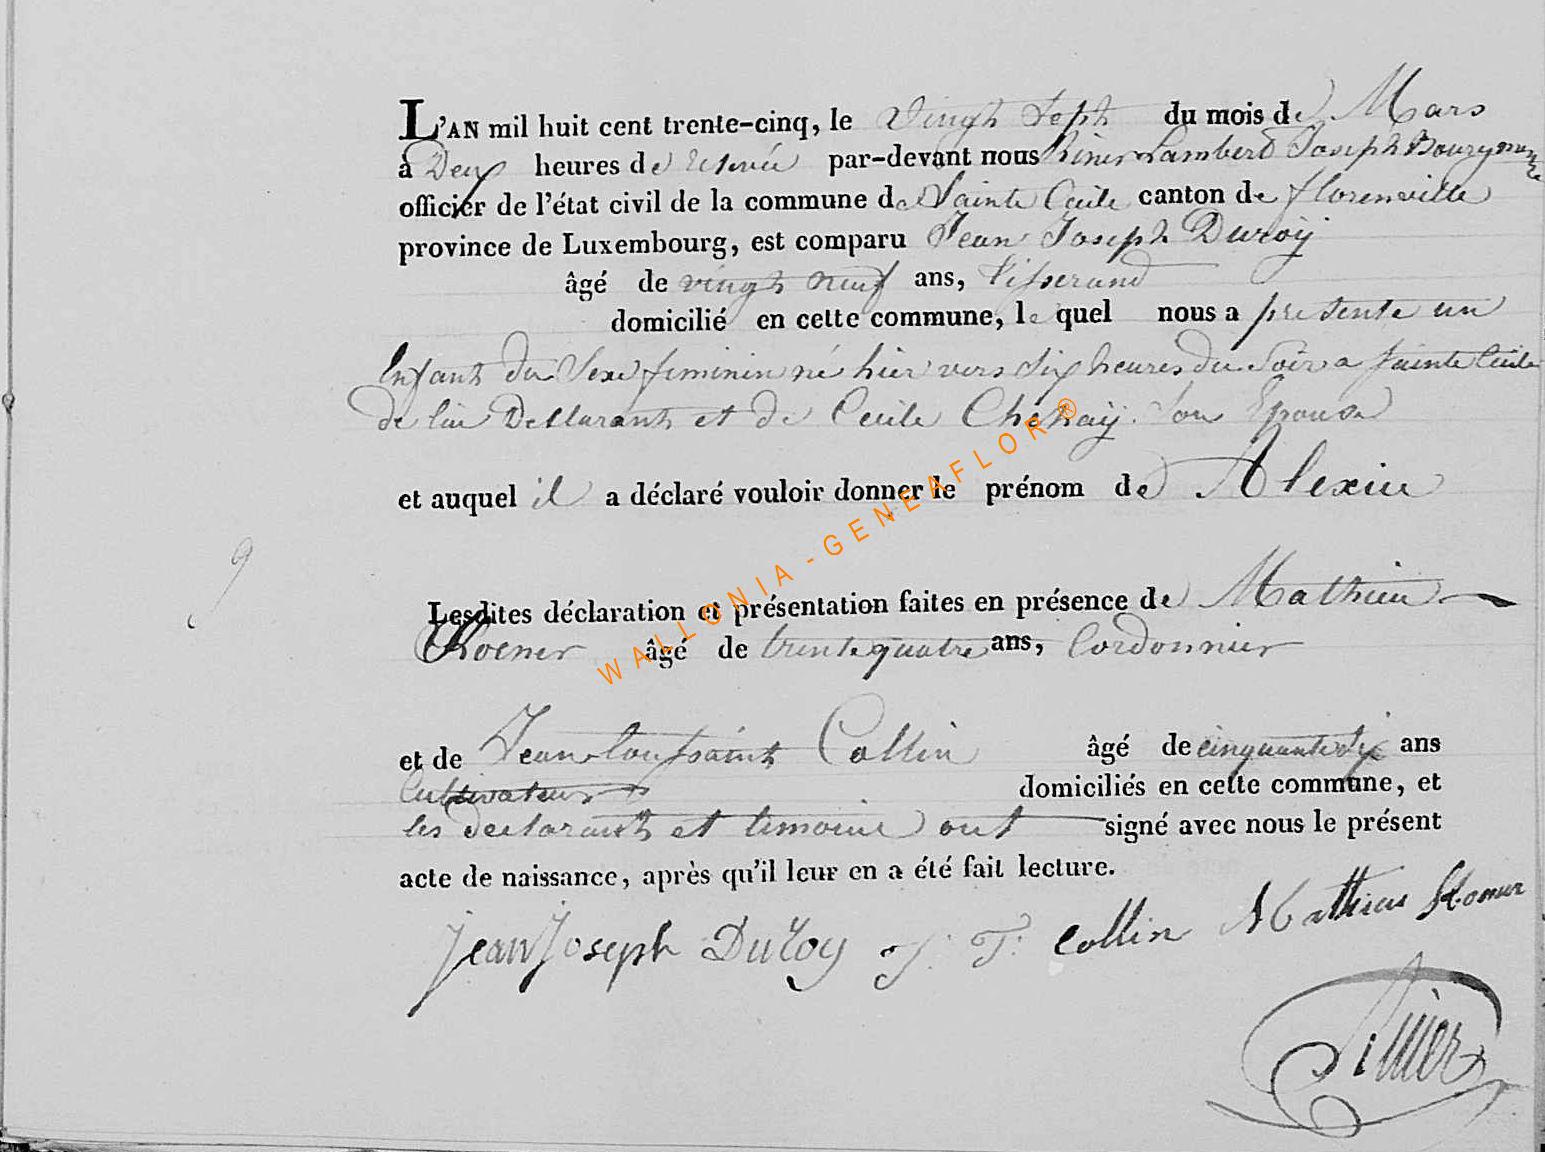 L'AN mil huit cent trente-cinq, le Vingt Sept du mois de Mars
à Deux heures de relevée par-devant nous Lambert Joseph
officier de l'état civil de la commune de Sainte Cecile canton de florenville
province de Luxembourg, est comparu Jean Joseph Duroÿ
âgé de vingt neuf ans, tisserand
domicilié en cette commune, le quel nous a presente un
Enfant du Sexe feminin né hier vers Six heures du Soir a Sainte Cecile
de lui Declarant et de Cecile Son Epouse
et auquel il a déclaré vouloir donner le prénom de
Lesdites déclaration et présentation faites en présence de Mathieu
âgé de trente quatre ans, Cordonnier
et de Jean toussaint Collin âgé de cinquante Six ans
Cultivateur domiciliés en cette commune, et
les declarant et temoins ont signé avec nous le présent
acte de naissance, après qu'il leur en a été fait lecture.
Jean Joseph Duroy J. T. Collin Mathieu
9
WALLONIA - GENEAFLOR ®